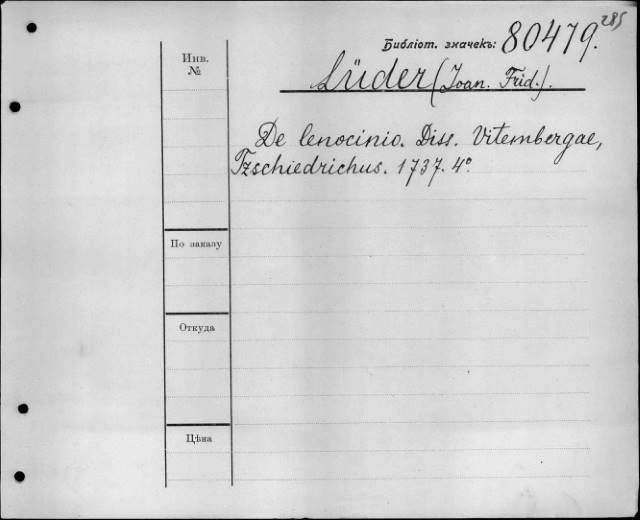 285
Библіот. значекъ: 80479.
Инв.
№
Lüder (Joan. Frid.).
De lenocinio. Diss. Vitembergae,
Tzschiedrichus. 1737. 4º
По заказу
Откуда
Цѣна